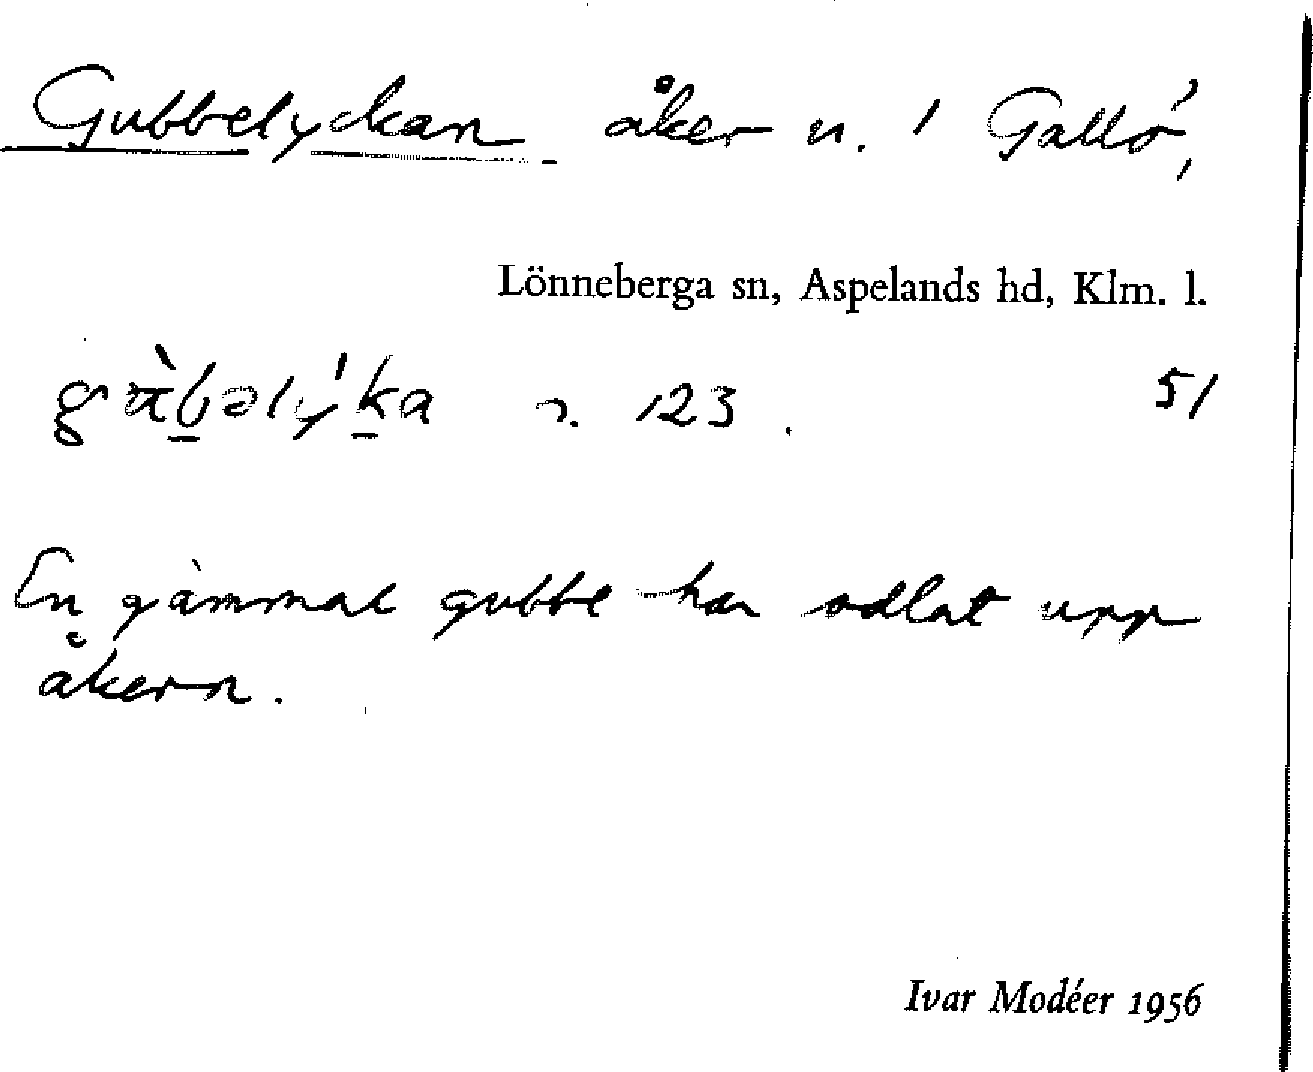 Gubbelyckan åker n. 1 Gallö,
Lönneberga sn, Aspelands hd, Klm. l.
51
En gammal gubbe har odlat upp
åkern.
Ivar Modéer 1956